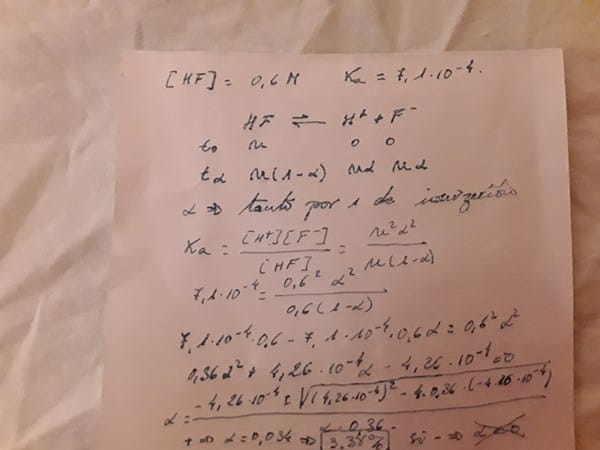 [HF] = 0,6 M Ka = 7,1·10⁻⁴.
HF ⇌ H⁺ + F⁻
t₀ n 0 0
tα n(1-α) nα nα
α ⇒ tanto por 1 de ionización
Ka = [H⁺][F⁻] / [HF] = n²α² / n(1-α)
7,1·10⁻⁴ = 0,6² α² / 0,6(1-α)
7,1·10⁻⁴·0,6 - 7,1·10⁻⁴·0,6α = 0,6² α²
0,36α² + 4,26·10⁻⁴α - 4,26·10⁻⁴ = 0
α = -4,26·10⁻⁴ ± √((4,26·10⁻⁴)² - 4·0,36·(-4,26·10⁻⁴)) / 2·0,36
+ ⇒ α = 0,034 ⇒ 3.38% si - ⇒ α<0